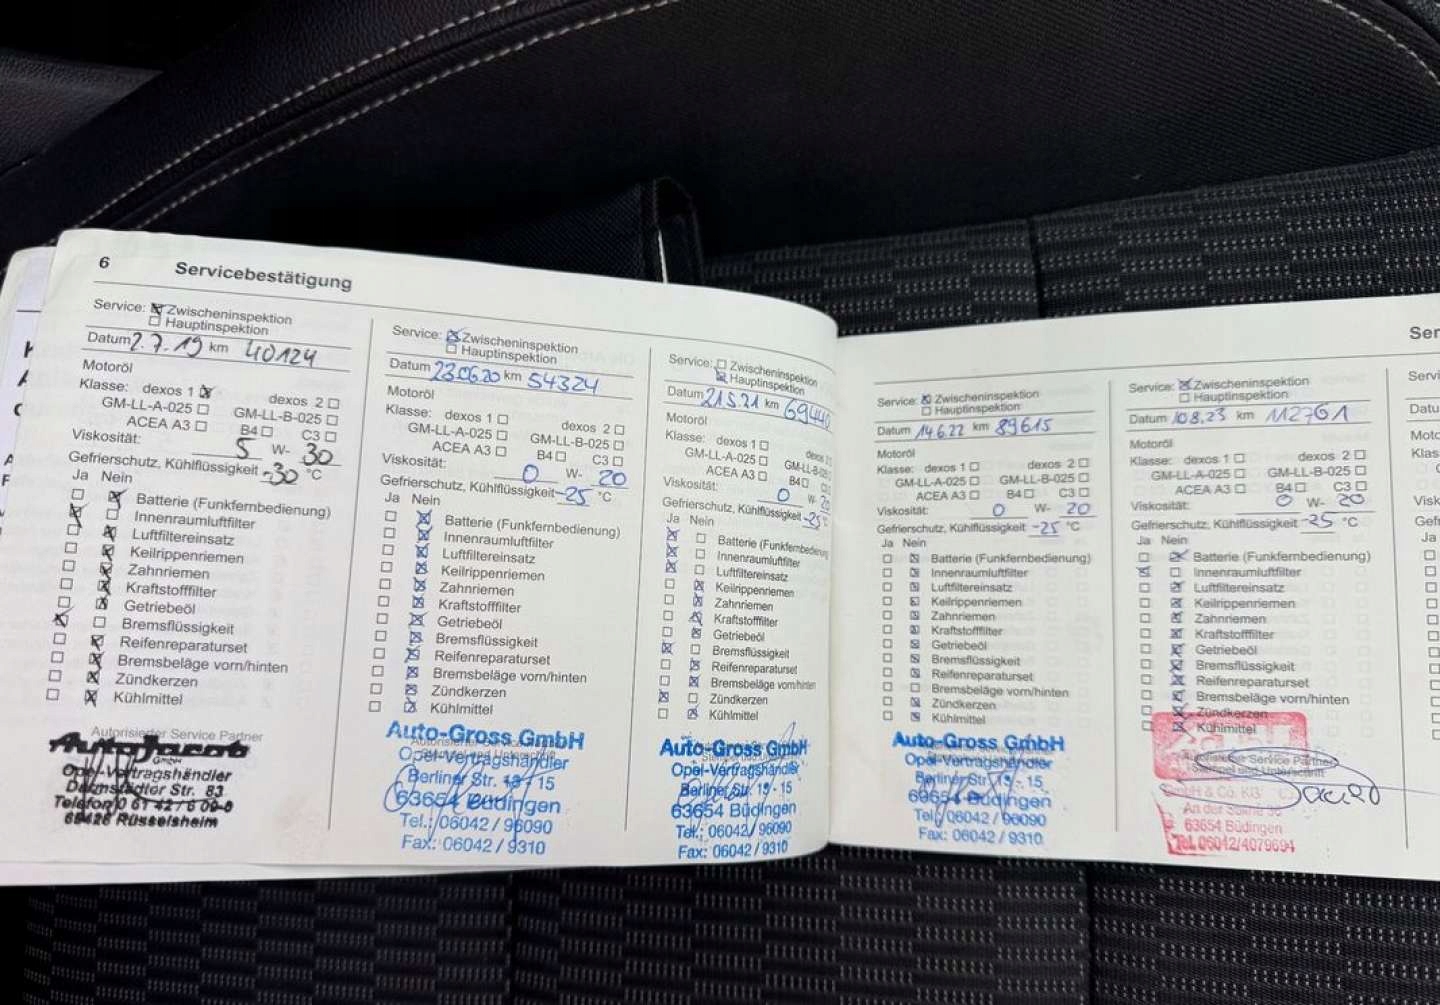 6 Servicebestätigung
Service: Zwischeninspektion
Hauptinspektion
Datum 2.7.19 km 40124
Motoröl
Klasse: dexos 1 dexos 2
GM-LL-A-025 GM-LL-B-025
ACEA A3 B4 C3
Viskosität: 5 W- 30
Gefrierschutz, Kühlflüssigkeit -30 °C
Ja Nein
Batterie (Funkfernbedienung)
Innenraumluftfilter
Luftfiltereinsatz
Keilrippenriemen
Zahnriemen
Kraftstofffilter
Getriebeöl
Bremsflüssigkeit
Reifenreparaturset
Bremsbeläge vorn/hinten
Zündkerzen
Kühlmittel
Autorisierter Service Partner
Auto Jacob
GmbH
Opel-Vertragshändler
Darmstädter Str. 83
Telefon 0 61 42 / 6 00-0
65428 Rüsselsheim
Service: Zwischeninspektion
Hauptinspektion
Datum 23.06.20 km 54324
Motoröl
Klasse: dexos 1 dexos 2
GM-LL-A-025 GM-LL-B-025
ACEA A3 B4 C3
Viskosität: 0 W- 20
Gefrierschutz, Kühlflüssigkeit -25 °C
Ja Nein
Batterie (Funkfernbedienung)
Innenraumluftfilter
Luftfiltereinsatz
Keilrippenriemen
Zahnriemen
Kraftstofffilter
Getriebeöl
Bremsflüssigkeit
Reifenreparaturset
Bremsbeläge vorn/hinten
Zündkerzen
Kühlmittel
Auto-Gross GmbH
Opel-Vertragshändler
Berliner Str. 13 - 15
63654 Büdingen
Tel.: 06042 / 96090
Fax: 06042 / 9310
Service: Zwischeninspektion
Hauptinspektion
Datum 21.5.21 km 69440
Motoröl
Klasse: dexos 1 dexos
GM-LL-A-025 GM-LL-B
ACEA A3 B4
Viskosität: 0 W- 20
Gefrierschutz, Kühlflüssigkeit -25
Ja Nein
Batterie (Funkfernbedienung
Innenraumluftfilter
Luftfiltereinsatz
Keilrippenriemen
Zahnriemen
Kraftstofffilter
Getriebeöl
Bremsflüssigkeit
Reifenreparaturset
Bremsbeläge vorn/hinten
Zündkerzen
Kühlmittel
Auto-Gross GmbH
Opel-Vertragshändler
Berliner Str. 13 - 15
63654 Büdingen
Tel.: 06042 / 96090
Fax: 06042 / 9310
Ser
Service: Zwischeninspektion
Hauptinspektion
Datum 14.6.22 km 89615
Motoröl
Klasse: dexos 1 dexos 2
GM-LL-A-025 GM-LL-B-025
ACEA A3 B4 C3
Viskosität: 0 W- 20
Gefrierschutz, Kühlflüssigkeit -25 °C
Ja Nein
Batterie (Funkfernbedienung)
Innenraumluftfilter
Luftfiltereinsatz
Keilrippenriemen
Zahnriemen
Kraftstofffilter
Getriebeöl
Bremsflüssigkeit
Reifenreparaturset
Bremsbeläge vorn/hinten
Zündkerzen
Kühlmittel
Auto-Gross GmbH
Opel-Vertragshändler
Berliner Str. 13 - 15
63654 Büdingen
Tel.: 06042 / 96090
Fax: 06042 / 9310
Service: Zwischeninspektion
Hauptinspektion
Datum 10.8.23 km 112761
Motoröl
Klasse: dexos 1 dexos 2
GM-LL-A-025 GM-LL-B-025
ACEA A3 B4 C3
Viskosität: 0 W- 20
Gefrierschutz, Kühlflüssigkeit -25 °C
Ja Nein
Batterie (Funkfernbedienung)
Innenraumluftfilter
Luftfiltereinsatz
Keilrippenriemen
Zahnriemen
Kraftstofffilter
Getriebeöl
Bremsflüssigkeit
Reifenreparaturset
Bremsbeläge vorn/hinten
Zündkerzen
Kühlmittel
Autorisierter Service Partner
Stempel und Unterschrift
GmbH & Co. KG
An der Saline
63654 Büdingen
Tel. 06042/4079694
Servi
Datu
Moto
Klas
Visk
Gef
Ja